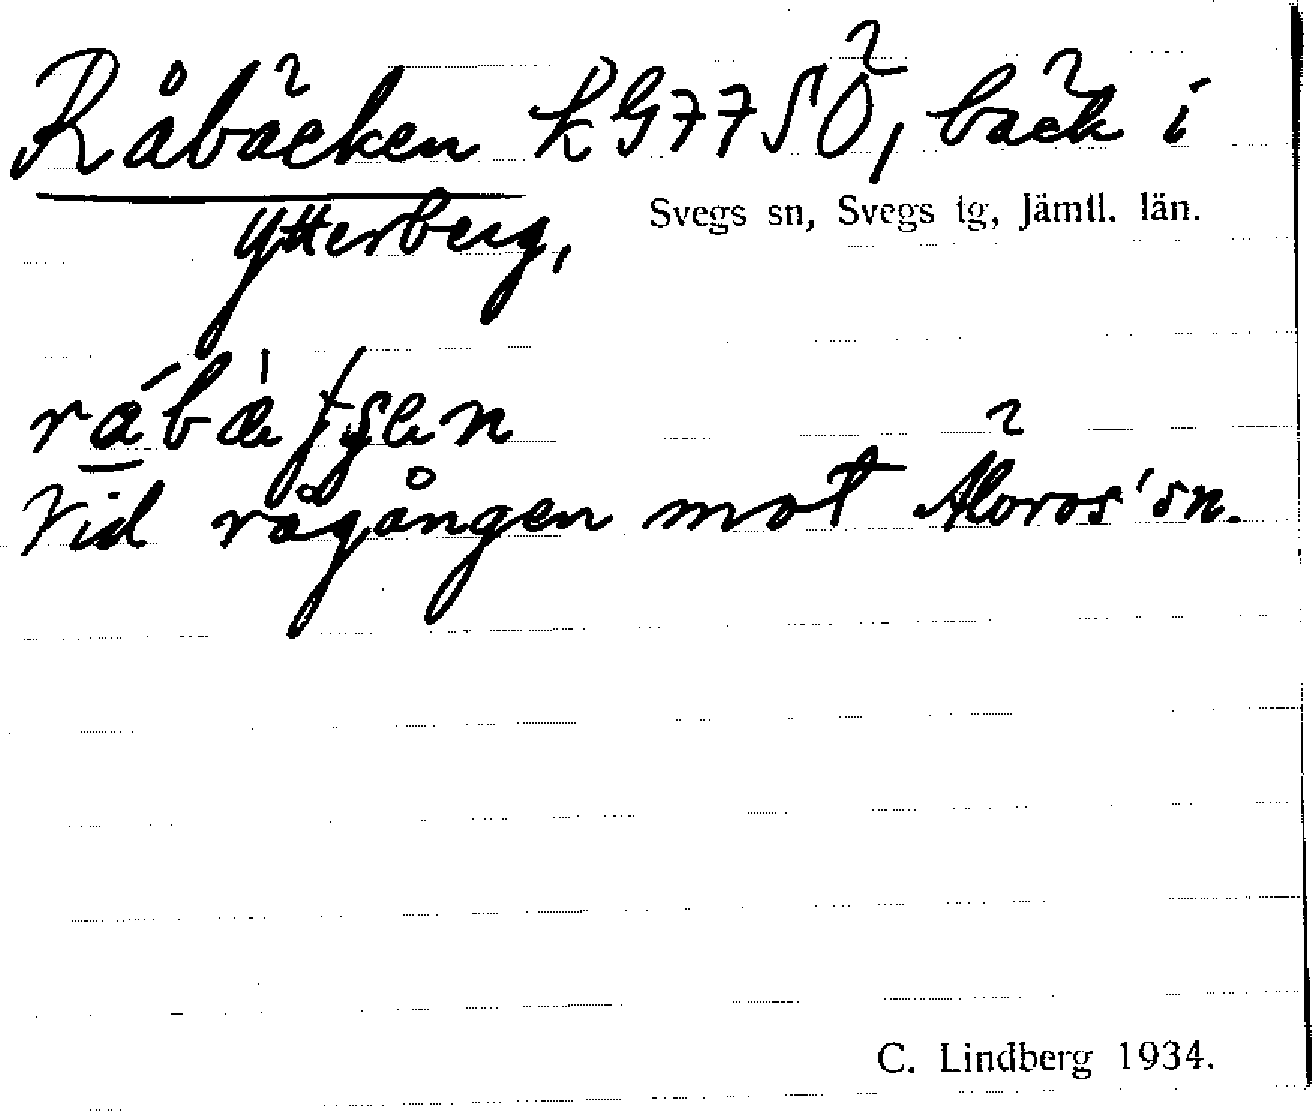 Råbäcken kG77SÖ, bäck i
Ytterberg,
Svegs sn, Svegs tg, Jämtl. län.
Vid rågången mot Älvros' sn.
C. Lindberg 1934.